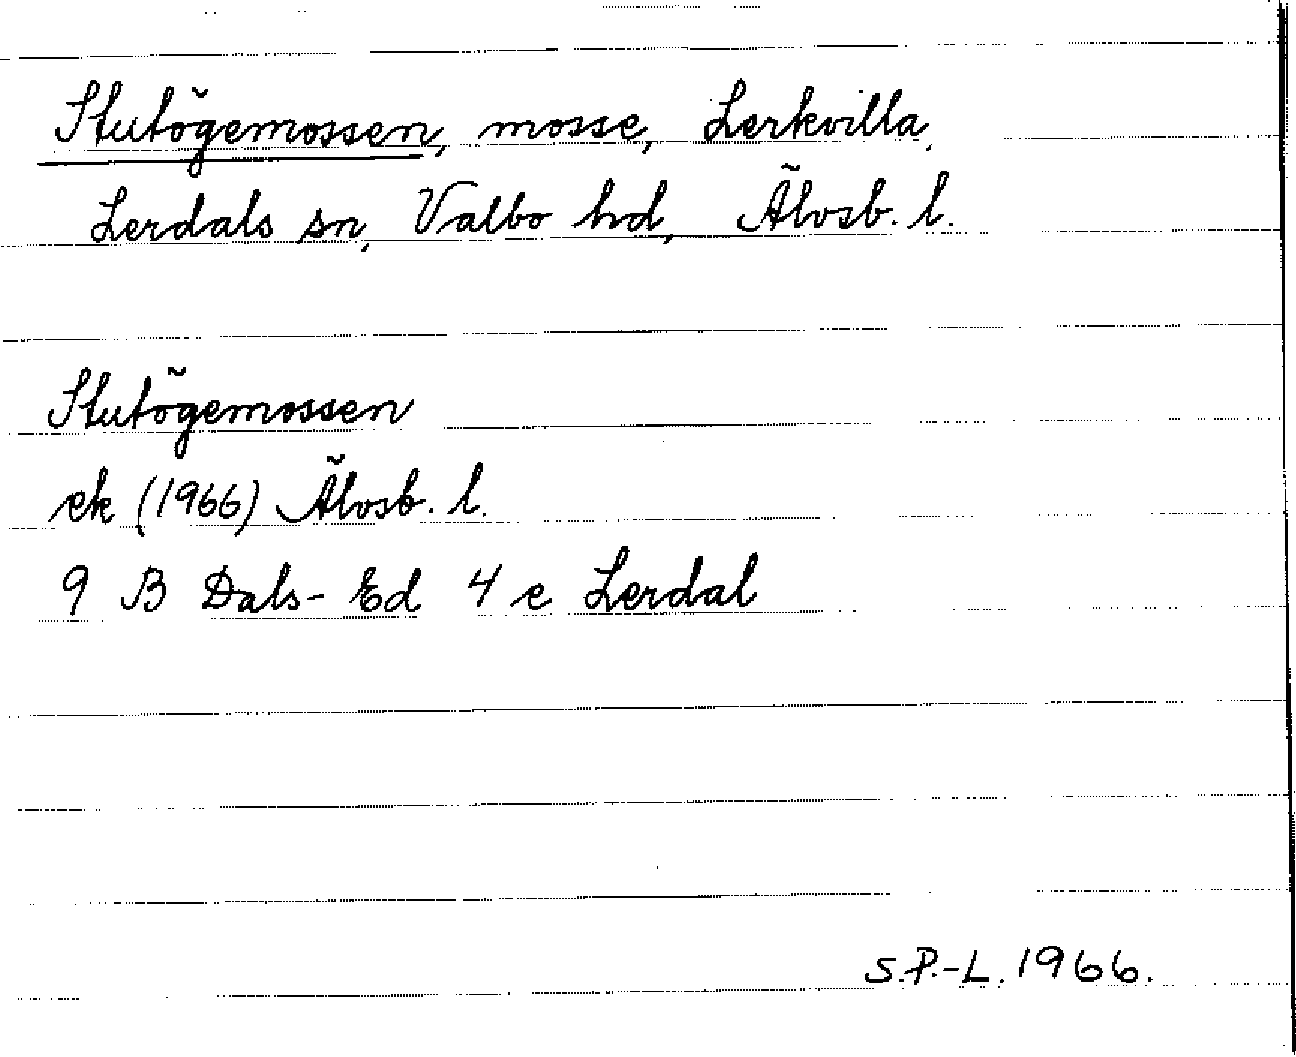 Stutögemossen, mosse, Lerkvilla,
Lerdals sn, Valbo hd, Älvsb. l.
Stutögemossen
ek (1966) Älvsb. l.
9 B Dals-Ed 4 e Lerdal
S.P.-L. 1966.